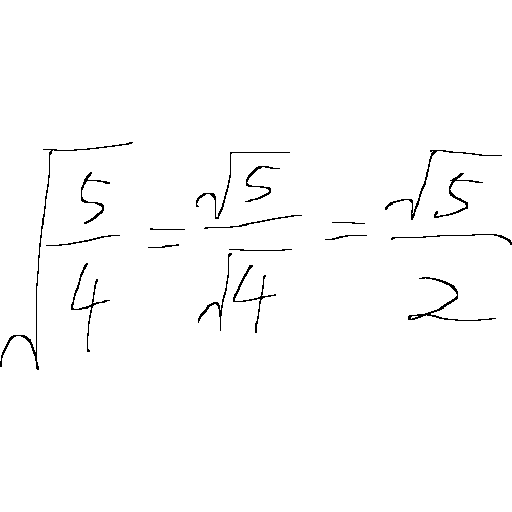 \sqrt{\frac{5}{4}} = \frac{\sqrt{5}}{\sqrt{4}} = \frac{\sqrt{5}}{2}